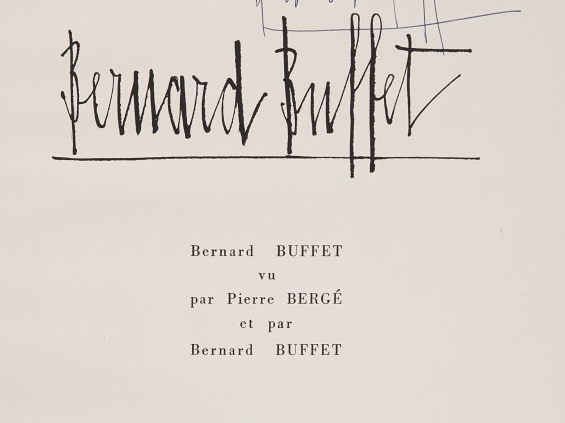 Bernard Buffet
Bernard BUFFET
vu
par Pierre BERGÉ
et par
Bernard BUFFET